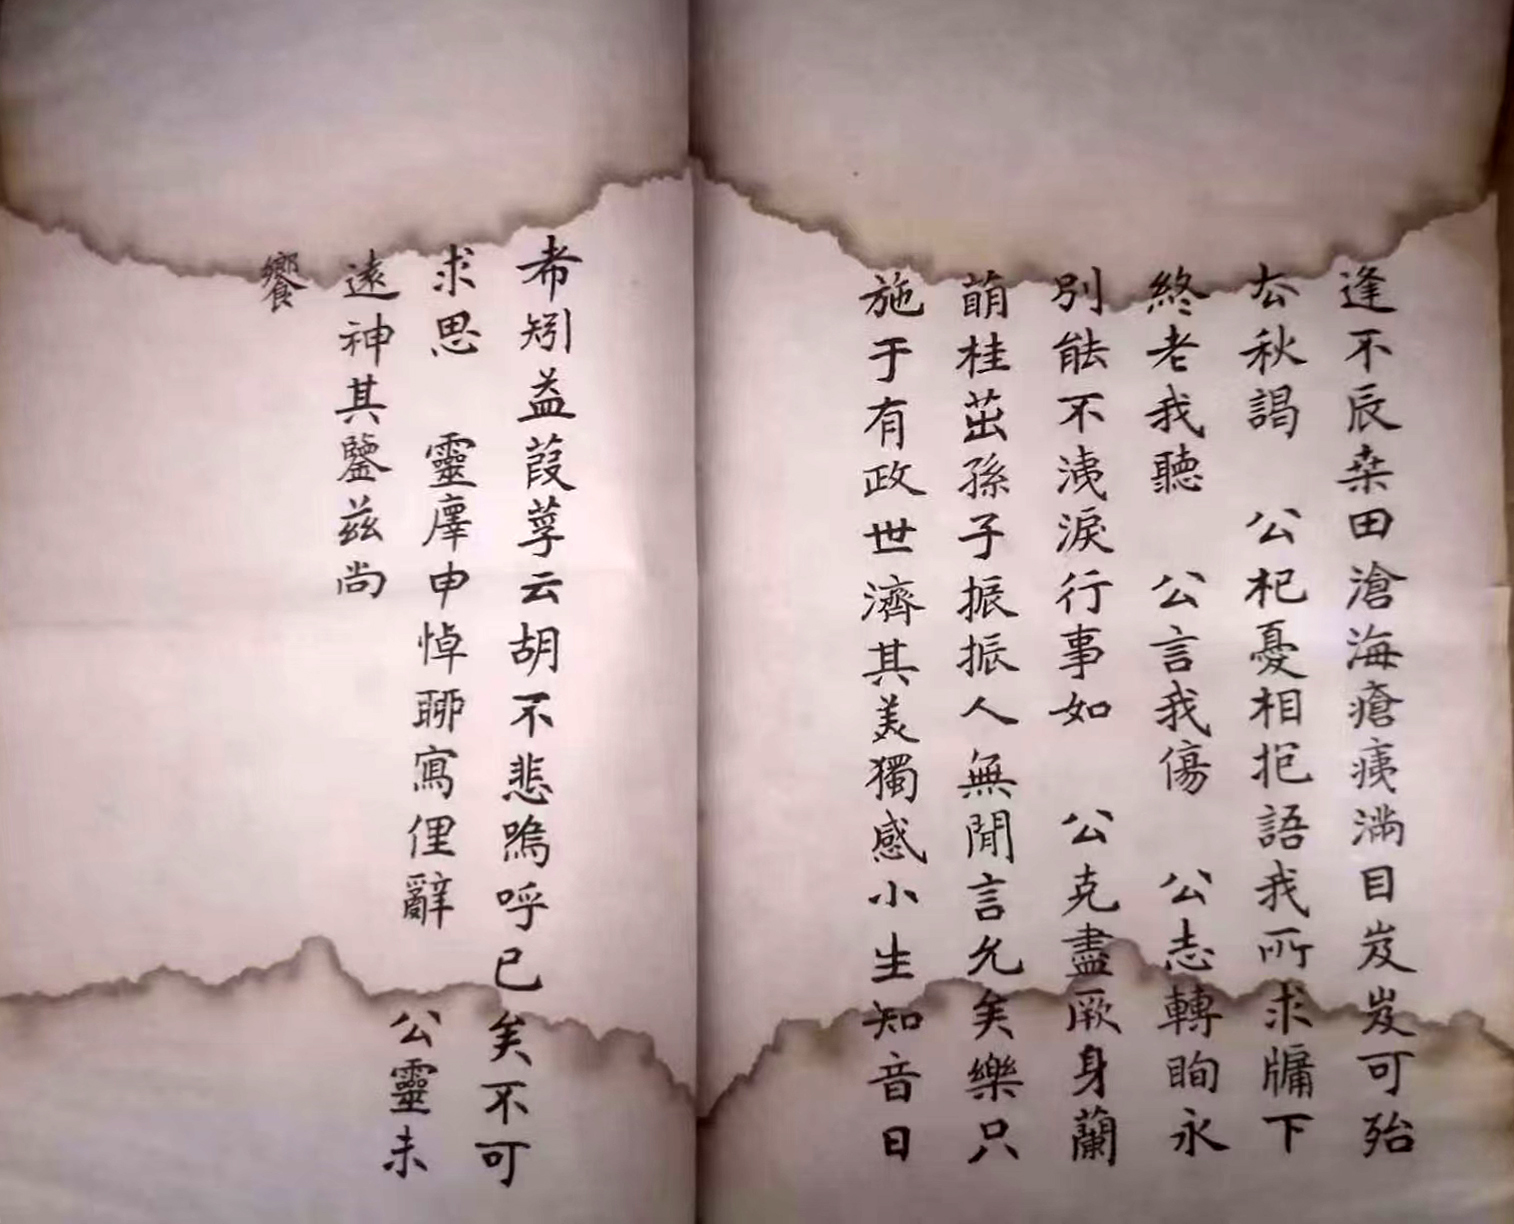 逢不辰桒田滄海瘡痍満目岌岌可殆
厺秋謁 公杞憂相抳語我所求牗下
終老我聽 公言我傷 公志轉眴永
別能不洟淚行事如 公克盡厥身蘭
萌桂茁孫子振振人無閒言允矣樂只
施于有政世濟其美獨感小生知音日
希矧益葭莩云胡不悲嗚呼已矣不可
求思 靈庫申悼聊寫俚辭 公靈未
遠神其鑒茲尚
饗